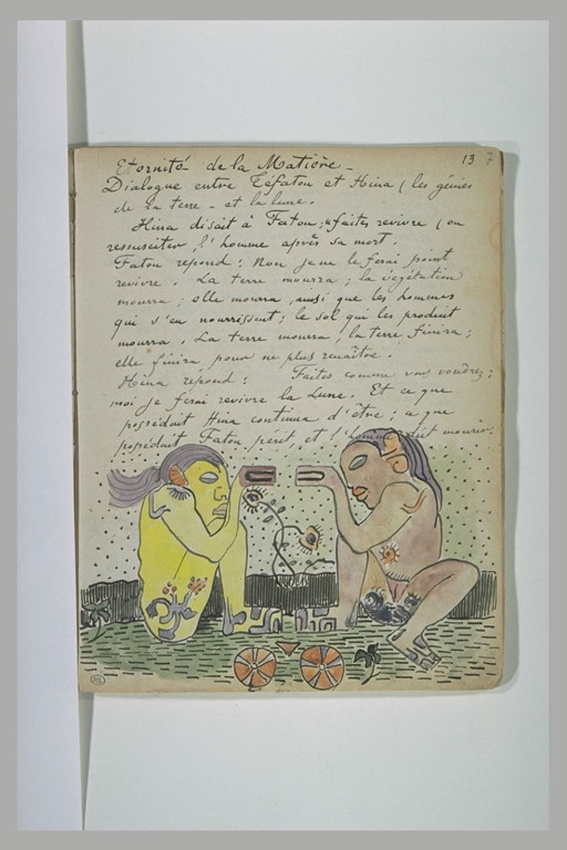 13 7
Eternité de la Matière -
Dialogue entre Téfatou et Hina (les génies
de la terre - et la lune.
Hina disait à Fatou; "faites revivre (ou
ressusciter, l'homme après sa mort.
Fatou repond: Non je ne le ferai point
revivre. La terre mourra; la végétation
mourra; elle mourra, ainsi que les hommes
qui s'en nourrissent; le sol qui les produit
mourra. La terre mourra, la terre finira;
elle finira pour ne plus renaître.
Hina répond: Faites comme vous voudrez;
moi je ferai revivre la Lune. Et ce que
possédait Hina continua d'être; ce que
possédait Fatou périt, et l'homme dut mourir.